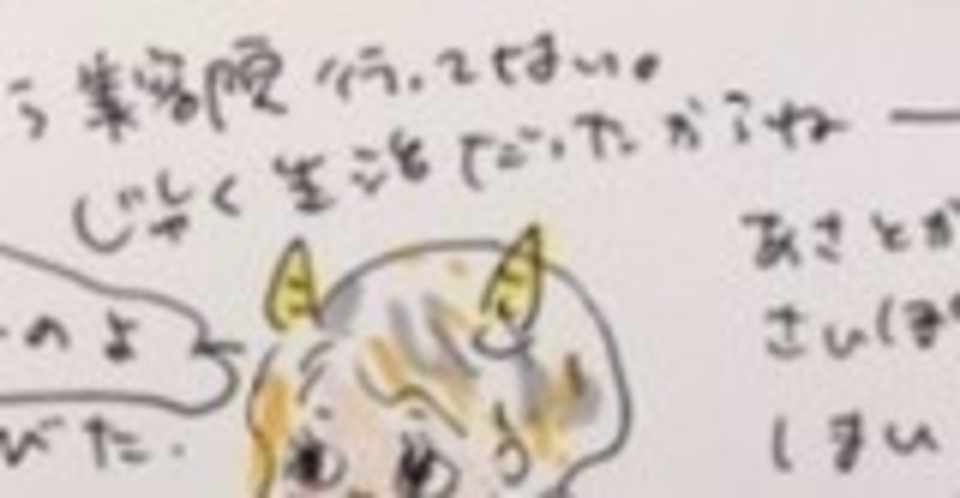 う美容院行ってない。
じゃく生活だったからね
のよ
びた.
あさとか
さいほ
しまい